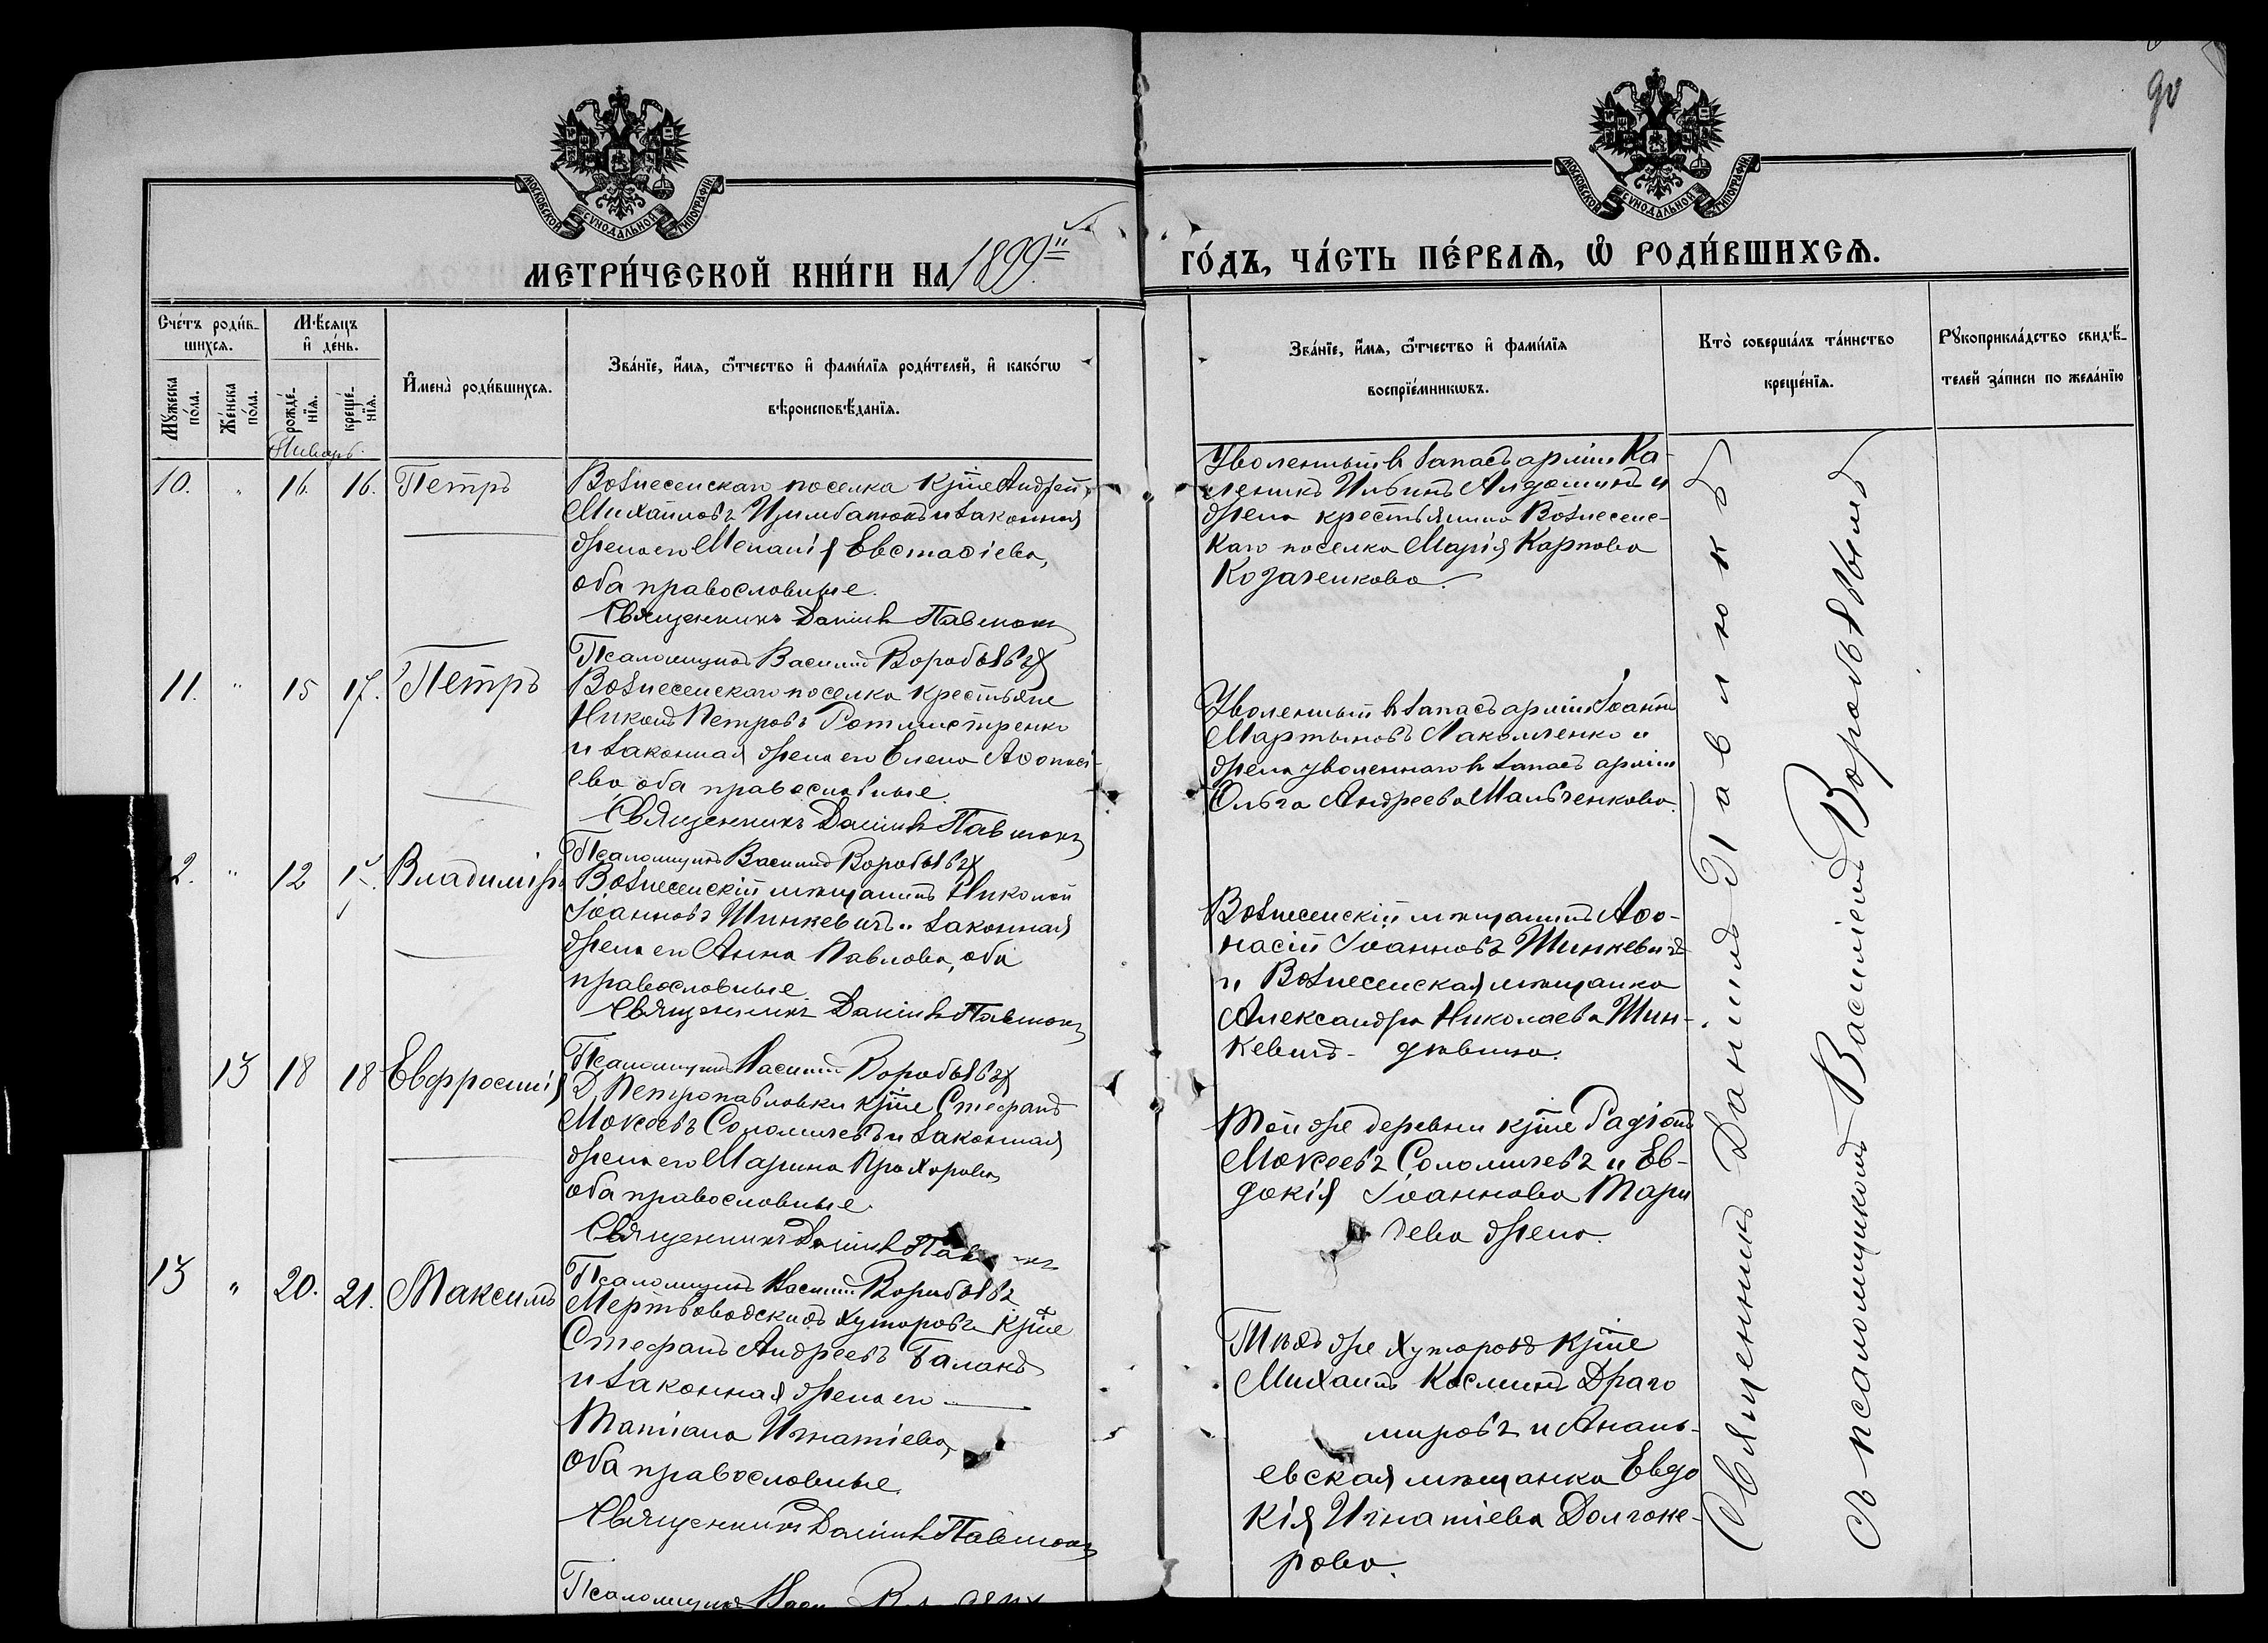 90
МОСКОВСКОЙ СѴНОДАЛЬНОЙ ТИПОГРАФІИ
МОСКОВСКОЙ СѴНОДАЛЬНОЙ ТИПОГРАФІИ
МЕТРИ́ЧЕСКОЙ КНИ́ГИ НА 1899й ГО́ДЪ, ЧА́СТЬ ПЕ́РВАЯ, Ѡ҆ РОДИ́ВШИХСЯ.
Сче́тъ роди́в-
шихся.
Мꙋжеска по́ла.
Же́нска по́ла.
Мѣ́сяцъ
и҆ де́нь.
рожде́-
нїя.
креще́-
нїя.
И҆мена̀ роди́вшихся.
Зва́нїе, и҆́мя, ѻ҆́тчество и҆ фами́лїя роди́телей, и҆ како́гѡ
вѣроисповѣ́данїя.
Зва́нїе, и҆́мя, ѻ҆́тчество и҆ фами́лїя
воспрїе́мникѡвъ.
Кто̀ соверша́лъ та́инство
креще́нїя.
Рꙋкоприкла́дство свидѣ́-
телей за́писи по жела́нїю
Январь.
10. " 16. 16. Петръ
Вознесенскаго поселка кр-не Андрей
Михайловъ Цимбалюкъ и законная
жена его Меланія Евстафіева,
оба православные.
Священникъ Даніилъ Павлюкъ
Псаломщикъ Василій Воробьевъ
Уволенный въ запасъ арміи Ка-
леникъ Ильинъ Алдошинъ и
жена крестьянина Вознесенс-
каго поселка Марія Карпова
Козаченкова.
11. " 15 17. Петръ
Вознесенскаго поселка крестьяне
Никонъ Петровъ Ротмистренко
и законная жена его Елена Афонасі-
ева, оба православные.
Священникъ Даніилъ Павлюкъ
Псаломщикъ Василій Воробьевъ
Уволенный въ запасъ арміи Іоаннъ
Мартыновъ Лакомченко и
жена уволеннаго въ запасъ арміи
Ольга Андреева Мальченкова.
12. " 12 Владиміръ
Вознесенскій мѣщанинъ Николай
Іоанновъ Шинкевичъ и законная
жена его Анна Павлова, оба
православные
Священникъ Даніилъ Павлюкъ
Псаломщикъ Василій Воробьевъ
Вознесенскій мѣщанинъ Афо-
насій Іоанновъ Шинкевичъ
и Вознесенская мѣщанка
Александра Николаева Шин-
кевичъ - дѣвица.
13 18 18 Евфросинія
Д. Петропавловки кр-не Стефанъ
Мокеевъ Соломичевъ и законная
жена его Марина Прохорова
оба православные.
Священникъ Даніилъ Павлюкъ
Псаломщикъ Василій Воробьевъ
Той же деревни кр-не Радіонъ
Мокеевъ Соломичевъ и Ев-
докія Іоаннова
жена.
13 " 20. 21. Максимъ
Мертвоводскихъ хуторовъ кр-не
Стефанъ Андреевъ Галакъ
и законная жена его
Татіана Игнатіева,
оба православные.
Священникъ Даніилъ Павлюкъ
Псаломщикъ
Тѣхъ же хуторовъ кр-не
Михаилъ Косминъ Драго
мировъ и Анань-
евская мѣщанка Евдо
кія Игнатіева Долгоже-
рова.
Священникъ Даніилъ Павлюкъ
съ псаломщикомъ Василіемъ Воробьевымъ